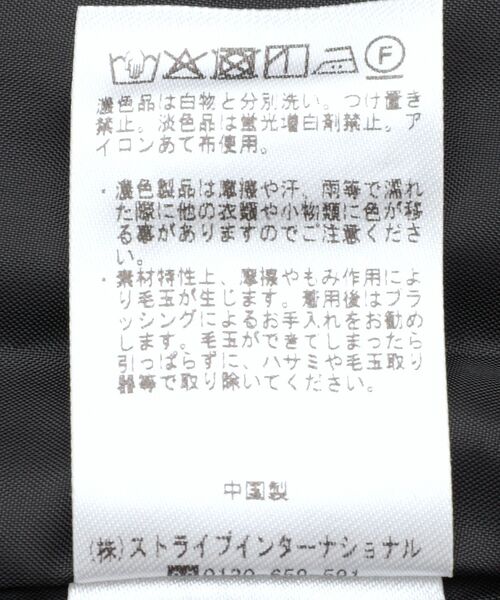 濃色品は白物と分別洗い。つけ置き
禁止。淡色品は蛍光増白剤禁止。ア
イロンあて布使用。
・濃色製品は摩擦や汗、雨等で濡れ
た際に他の衣類や小物類に色が移
る事がありますのでご注意くださ
い。
・素材特性上、摩擦やもみ作用によ
り毛玉が生じます。着用後はブラ
ッシングによるお手入れをお勧め
します。毛玉ができてしまったら
引っぱらずに、ハサミや毛玉取り
器等で取り除いてください。
中国製
(株)ストライプインターナショナル